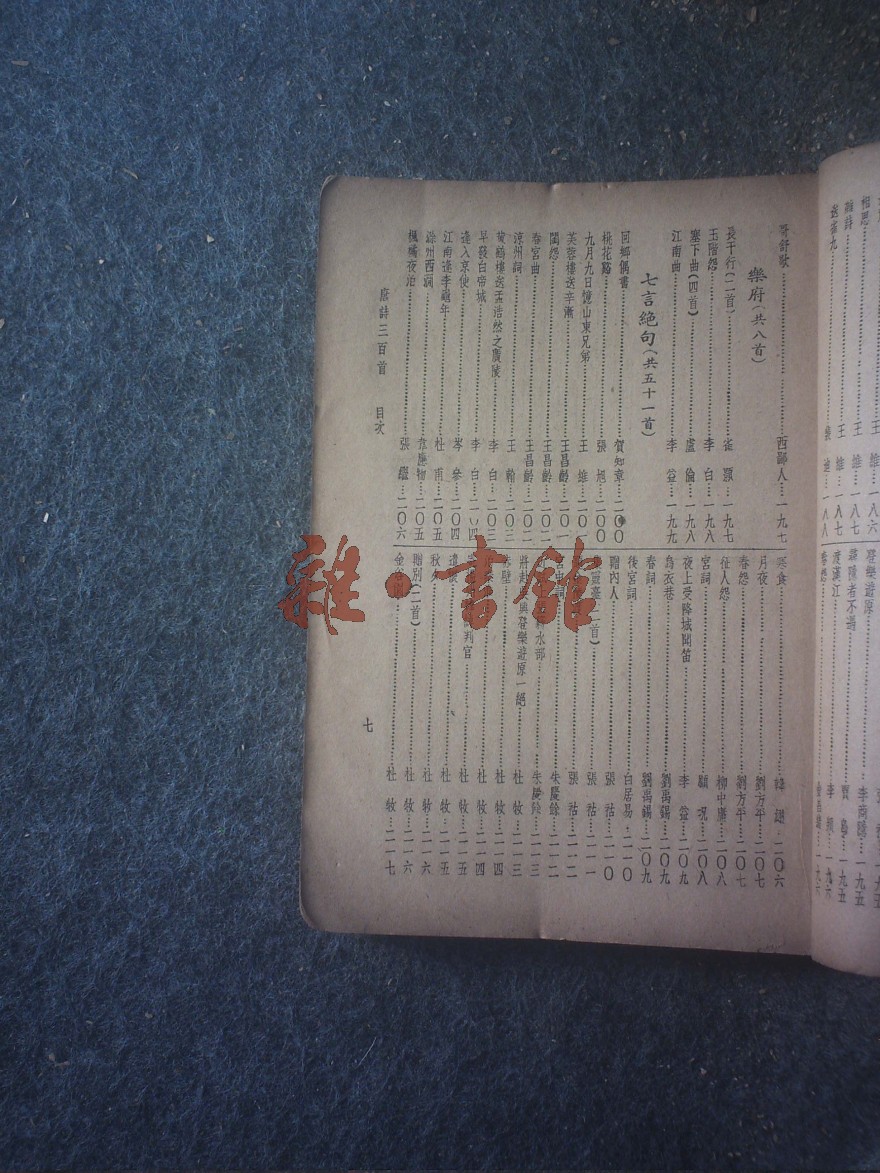 哥舒歌……西鄙人…一九七
樂府(共八首)
長干行(二首)……崔顥…一九七
玉階怨……李白…一九八
塞下曲(四首)……盧倫…一九八
江南曲……李益…一九九
七言絕句(共五十一首)
回鄉偶書……賀知章…二〇〇
桃花谿……張旭…二〇〇
九月九日憶山東兄弟……王維…二〇一
芙蓉樓送辛漸……王昌齡…二〇一
閨怨……王昌齡…二〇二
春宮曲……王昌齡…二〇二
涼州詞……王翰…二〇三
黃鶴樓送孟浩然之廣陵……李白…二〇三
早發白帝城……李白…二〇四
逢入京使……岑參…二〇四
江南逢李龜年……杜甫…二〇五
滁州西澗……韋應物…二〇五
楓橋夜泊……張繼…二〇六
寒食……韓翃…二〇六
月夜……劉方平…二〇七
春怨……劉方平…二〇七
征人怨……柳中庸…二〇八
宮詞……顧況…二〇八
夜上受降城聞笛……李益…二〇九
烏衣巷……劉禹錫…二〇九
春詞……劉禹錫…二〇九
後宮詞……白居易…二一〇
贈內人……張祜…二一〇
靈臺(二首)……張祜…二一一
張祜…二一二
宮中詞……朱慶餘…二一二
水部……朱慶餘…二一三
將赴吳興登樂遊原一絕……杜牧…二一三
赤壁……杜牧…二一四
杜牧…二一四
判官……杜牧…二一五
遣懷……杜牧…二一五
秋夕……杜牧…二一六
贈別(二首)……杜牧…二一六
金谷園……杜牧…二一七
唐詩三百首 目次
七
相思……王維…一八六
雜詩……王維…一八七
送崔九……裴迪…一八八
登樂遊原……李商隱…一九五
尋隱者不遇……賈島…一九五
渡漢江……李頻…一九六
春怨
雜·書館